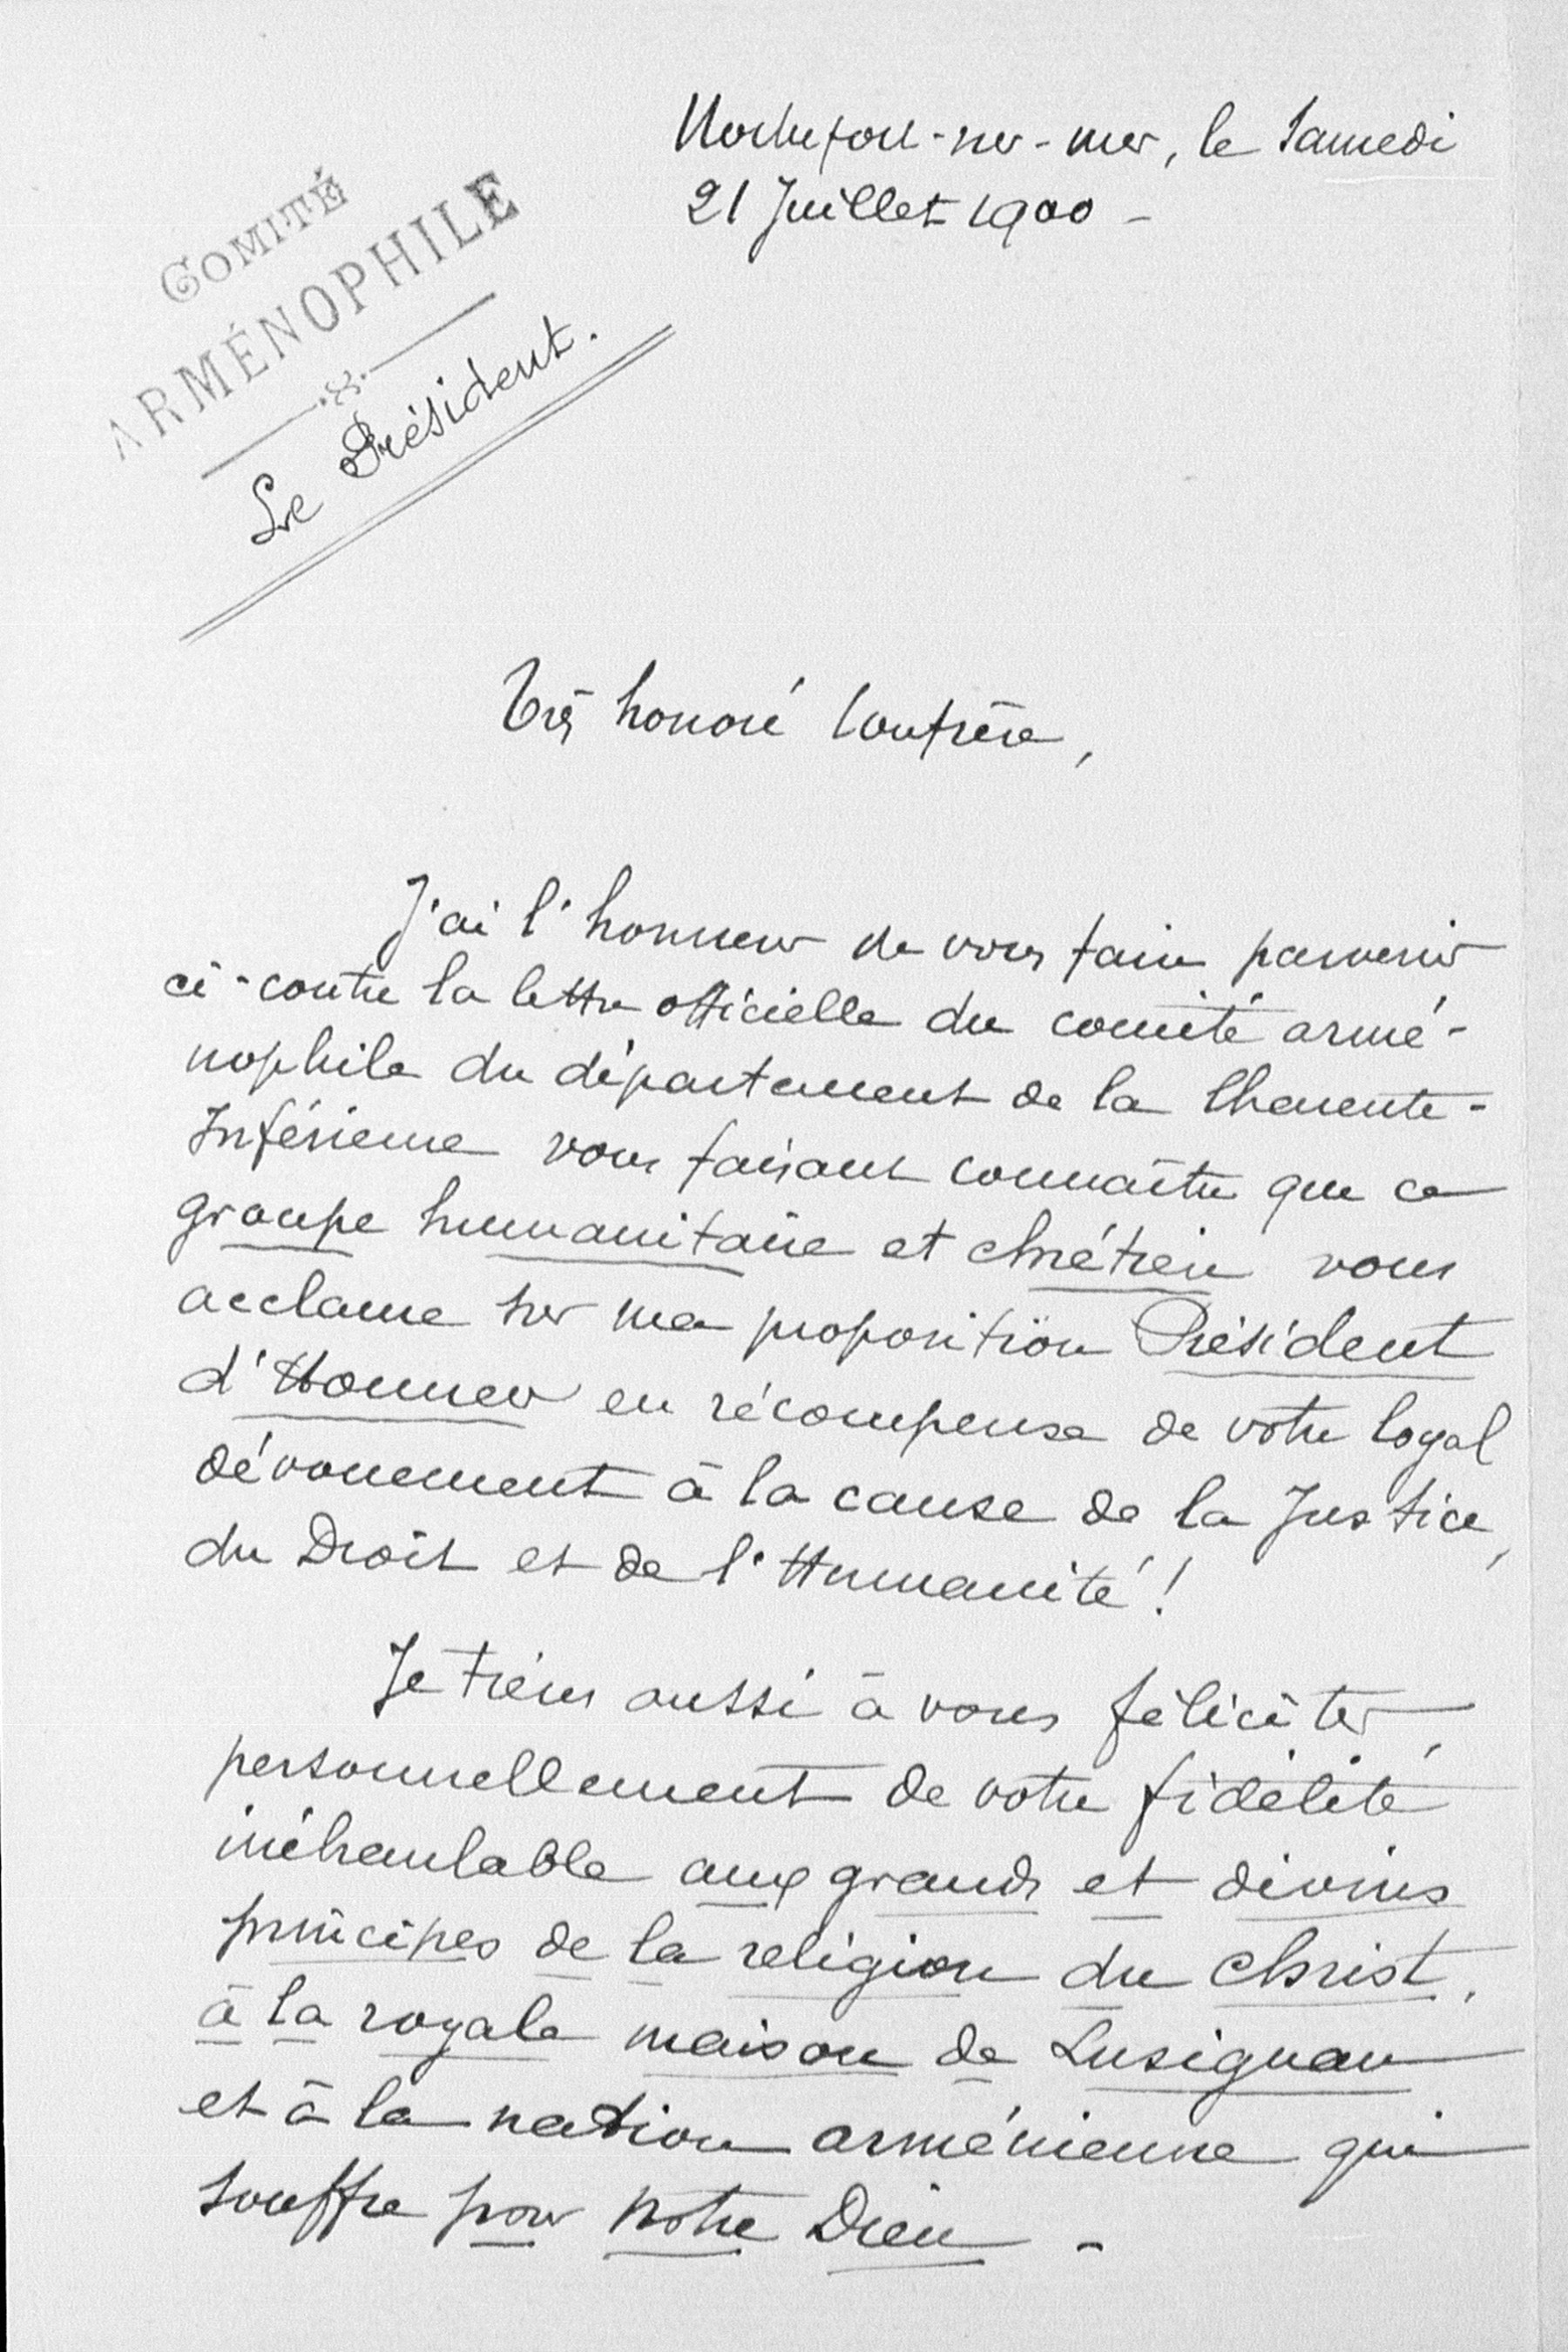 Rochefort-sur-mer, le Samedi
21 Juillet 1900 -
COMITÉ
ARMÉNOPHILE
Le Président.
Très honoré Confrère,
J'ai l'honneur de vous faire parvenir
ci-contre la lettre officielle du comité armé-
nophile du département de la Charente-
Inférieure vous faisant connaître que ce
groupe humanitaire et chrétien vous
acclame sur ma proposition Président
d'Honneur en récompense de votre loyal
dévouement à la cause de la Justice,
du Droit et de l'Humanité !
Je tiens aussi à vous féliciter,
personnellement de votre fidélité
inébranlable aux grands et divins
principes de la religion du Christ,
à la royale maison de Lusignan
et à la nation arménienne qui
souffre pour notre Dieu -